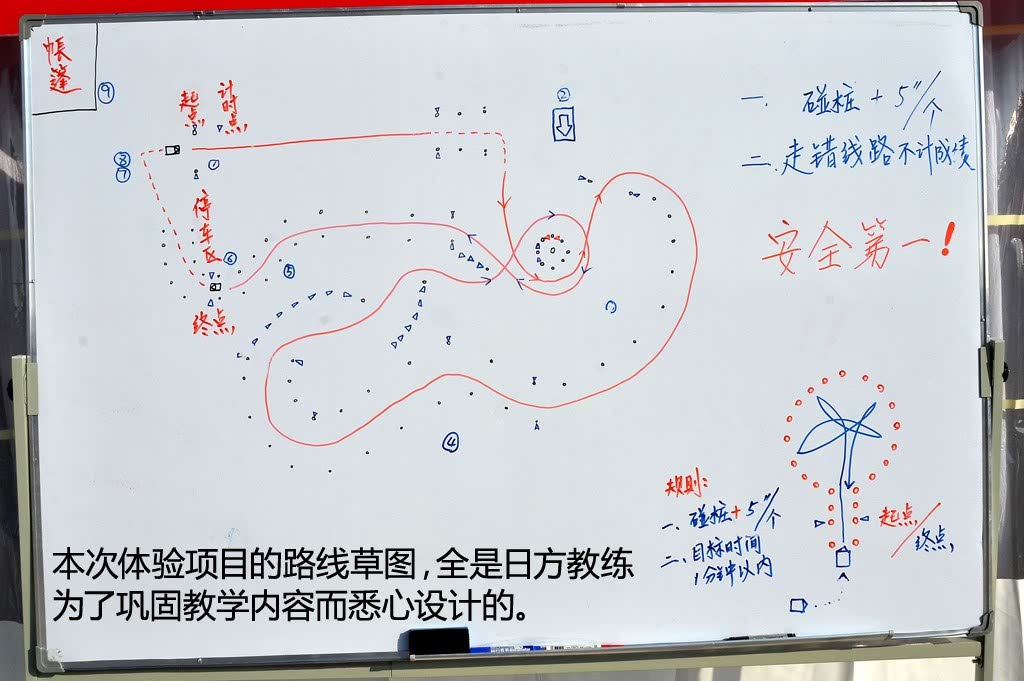 帳篷
⑨
起点
计时点
②
⑧
⑦
①
停车区
⑥
⑤
终点
④
一. 碰桩 + 5"/个
二. 走错线路不计成绩
安全第一!
规则:
一、碰桩 + 5"/个
二、目标时间
1分钟以内
起点/终点
本次体验项目的路线草图,全是日方教练
为了巩固教学内容而悉心设计的。